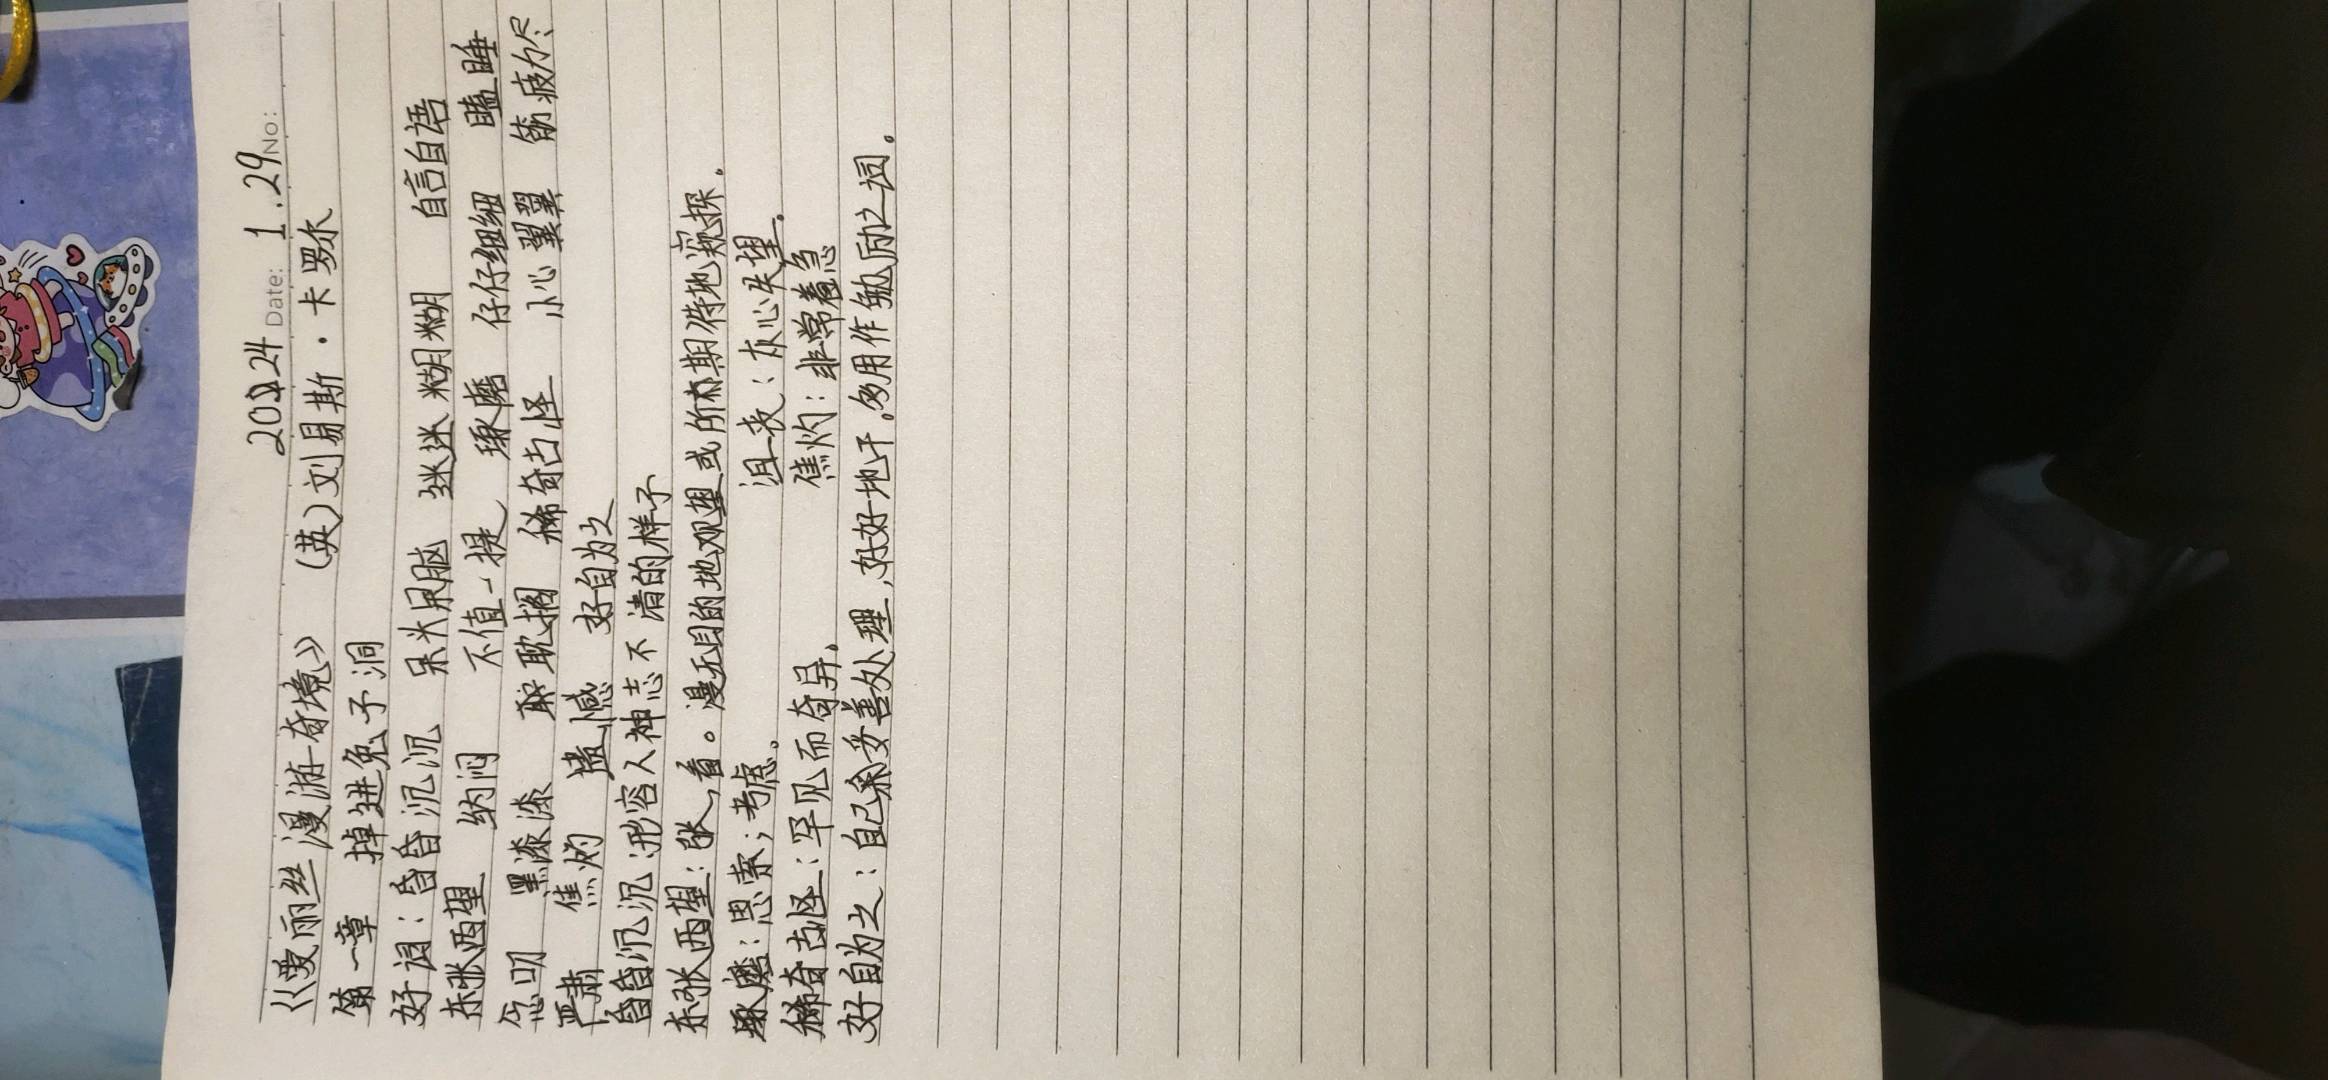 2024 Date: 1.29 No:
《爱丽丝漫游奇境》 (英)刘易斯·卡罗尔
第一章 掉进兔子洞
好词:昏昏沉沉 呆头呆脑 迷迷糊糊 自言自语
东张西望 纳闷 不值一提 琢磨 仔仔细细 瞌睡
怱叨 黑漆漆 耽搁 稀奇古怪 小心翼翼 筋疲力尽
严肃 焦灼 遗憾 好自为之
昏昏沉沉:形容人神志不清的样子
东张西望:张,看。漫无目的地观望或有所期待地窥探。
琢磨:思索;考虑。 沮丧:灰心失望。
稀奇古怪:罕见而奇异。 焦灼:非常着急
好自为之:自己妥善处理,好好地干。多用作勉励之词。